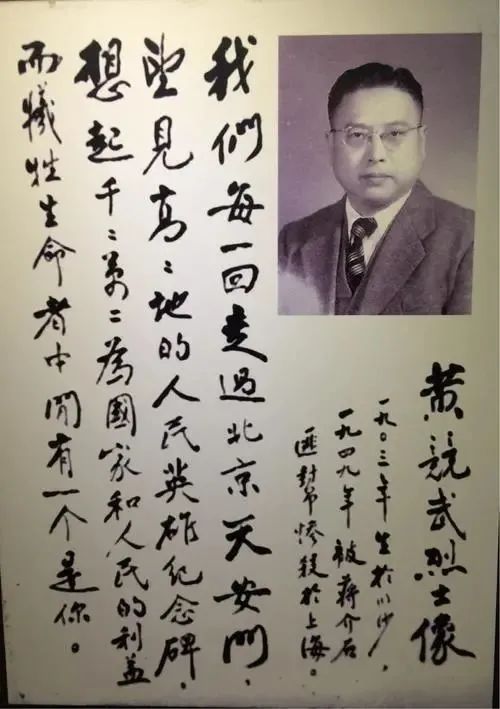 黄競武烈士像
一九〇三年生於川沙，
一九四九年被蔣介石
匪幫惨殺於上海。
我們每一回走過北京天安門，
望見高〻地的人民英雄纪念碑，
想起千〻萬〻為國家和人民的利益
而犧牲生命者中間有一个是你。